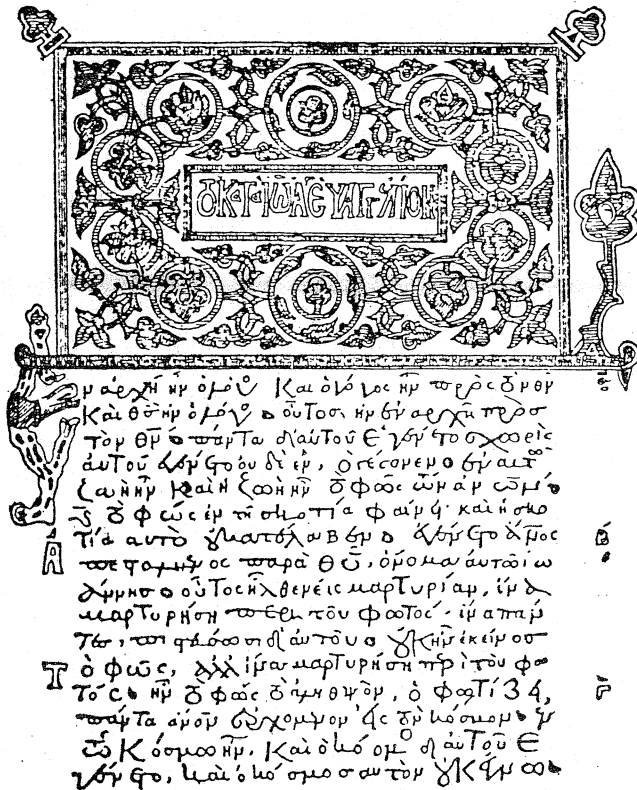 ΤΟ ΚΑΤΑ ΙΩΑ ΕΥΑΓΓΕΛΙΟΝ
Ἐν ἀρχῆ ἦν ὁ λόγος Καὶ ὁ λόγος ἦν πρὸς τὸν θν
Καὶ θς ἦν ὁ λόγος· οὗτος ἦν ἐν ἀρχῆ πρὸς
τὸν θν· πάντα δι αὐτοῦ ἐγένετο χωρὶς
αὐτοῦ ἐγένετο οὐδὲ ἓν, ὃ γέγονεν· ἐν αὐτῶ
ζωὴ ἦν καὶ ἡ ζωὴ ἦν τὸ φῶς τῶν ανων·
καὶ τὸ φῶς ἐν τῆ σκοτία φαίνει· καὶ ἡ σκο
τία αυτὸ οὐ κατέλαβεν· ἐγένετο ανος
ἀπεσταλμένος παρὰ θυ, ὄνομα αὐτῶ ἰω
άννης· οὗτος ἦλθεν εἰς μαρτυρίαν, ἵνα
μαρτυρήση περὶ τοῦ φωτός· ἵνα παν
τες, πιστεύσωσι δι αὐτοῦ· οὐκ ἦν ἐκεῖνος
τὸ φῶς, ἀλλ ἵνα μαρτυρήση περὶ τοῦ φω
τός· ἦν τὸ φῶς τὸ ἀληθινὸν, ὁ φωτίζει,
πάντα ανον ἐρχόμενον εἰς τὸν κόσμον· ἐν
τῶ Κόσμω ἦν, Καὶ ὁ κόσμος δι αὐτοῦ ἐ
γένετο, καὶ ὁ κόσμος αὐτὸν οὐκ ἔγνω·